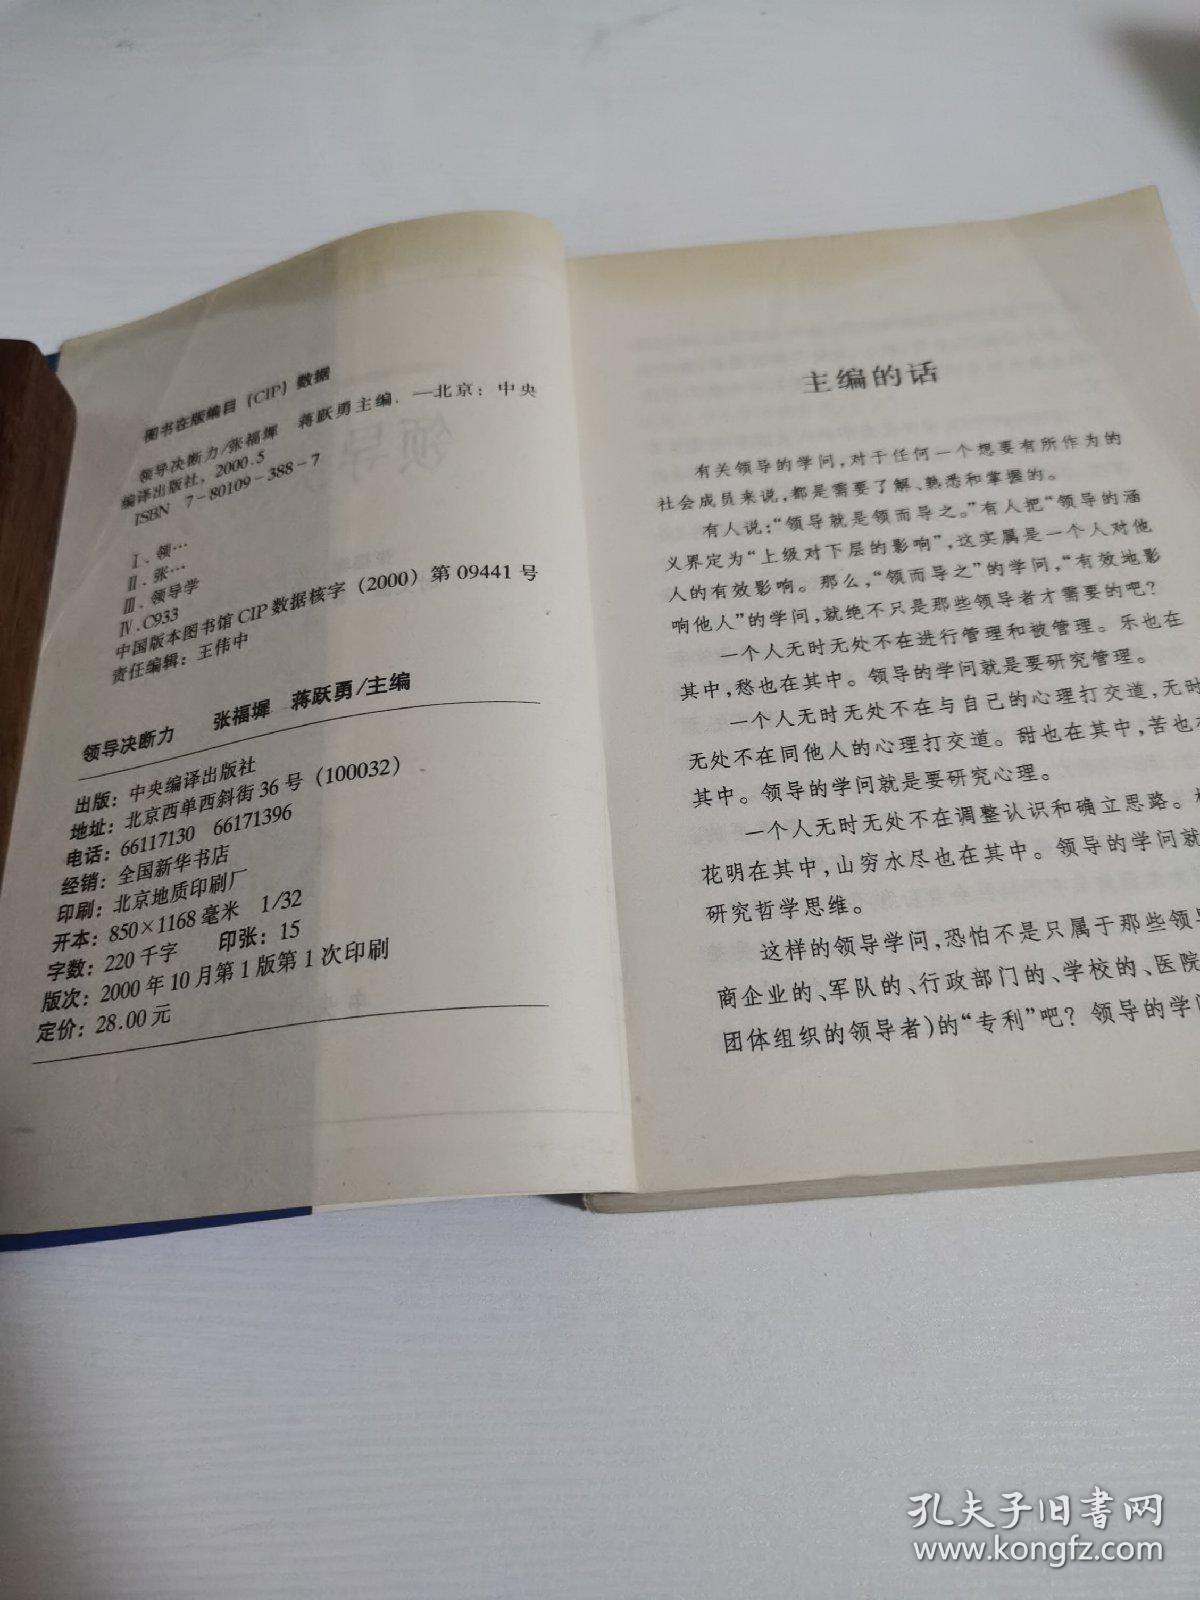 图书在版编目(CIP)数据
领导决断力/张福墀 蒋跃勇主编.—北京:中央
编译出版社,2000.5
ISBN 7-80109-388-7
Ⅰ.领…
Ⅱ.张…
Ⅲ.领导学
Ⅳ.C933
中国版本图书馆CIP数据核字(2000)第09441号
责任编辑:王伟中
领导决断力 张福墀 蒋跃勇/主编
出版:中央编译出版社
地址:北京西单西斜街36号(100032)
电话:66117130 66171396
经销:全国新华书店
印刷:北京地质印刷厂
开本:850×1168毫米 1/32
字数:220千字 印张:15
版次:2000年10月第1版第1次印刷
定价:28.00元
主编的话
有关领导的学问,对于任何一个想要有所作为的
社会成员来说,都是需要了解、熟悉和掌握的。
有人说:“领导就是领而导之。”有人把“领导的涵
义界定为“上级对下层的影响”,这实属是一个人对他
人的有效影响。那么,“领而导之”的学问,“有效地影
响他人”的学问,就绝不只是那些领导者才需要的吧?
一个人无时无处不在进行管理和被管理。乐也在
其中,愁也在其中。领导的学问就是要研究管理。
一个人无时无处不在与自己的心理打交道,无时
无处不在同他人的心理打交道。甜也在其中,苦也在
其中。领导的学问就是要研究心理。
一个人无时无处不在调整认识和确立思路。
花明在其中,山穷水尽也在其中。领导的学问就
研究哲学思维。
这样的领导学问,恐怕不是只属于那些领导
商企业的、军队的、行政部门的、学校的、医院
团体组织的领导者)的“专利”吧?领导的学问
领导
孔夫子旧书网
www.kongfz.com